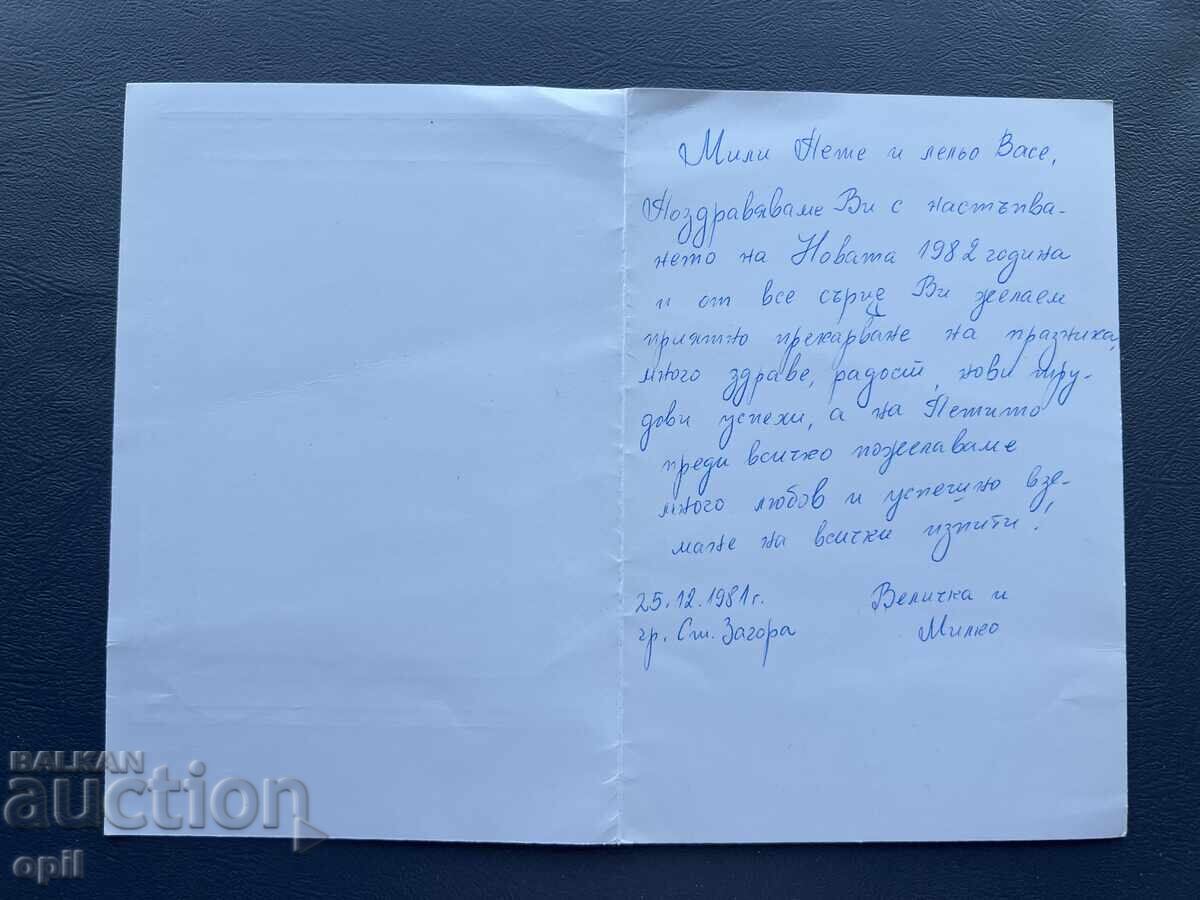 Мили Пете и лельо Васе,
Поздравяваме Ви с настъпва-
нето на Новата 1982 година
и от все сърце Ви желаем
приятно прекарване на празника,
много здраве, радост, нови тру-
дови успехи, а на Петито
преди всичко пожелаваме
много любов и успешно взе-
мане на всички изпити!
25.12.1981г.
гр. Ст. Загора
Величка и
Милко
BALKAN
auction
opil